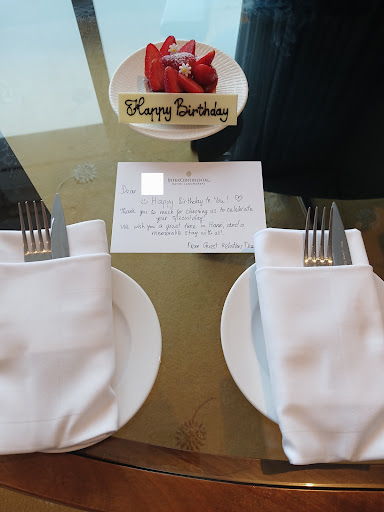 Happy Birthday
INTERCONTINENTAL
Dear
☺ Happy Birthday to You! ♡
Thank you so much for choosing us to celebrate
your special day!
We wish you a great time in Hanoi, and a
memorable stay with us!
From Guest Relations Team